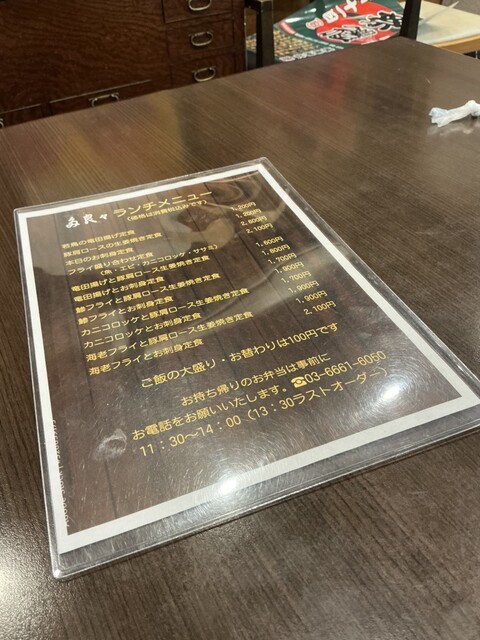 ランチメニュー
(価格は消費税込みです)
若鳥の竜田揚げ定食 1,200円
豚肩ロースの生姜焼き定食
本日のお刺身定食
フライ盛り合わせ定食 2,100円
(魚・エビ・カニコロッケ・ササミ)
竜田揚げと豚肩ロース生姜焼き定食 1,600円
竜田揚げとお刺身定食 1,800円
鯵フライと豚肩ロース生姜焼き定食 1,700円
鯵フライとお刺身定食 1,900円
カニコロッケと豚肩ロース生姜焼き定食 1,700円
カニコロッケとお刺身定食 1,900円
海老フライと豚肩ロース生姜焼き定食 1,900円
海老フライとお刺身定食 2,100円
ご飯の大盛り・お替わりは100円です
お持ち帰りのお弁当は事前に
お電話をお願いいたします。☎03-6661-6060
11：30～14：00（13：30ラストオーダー）